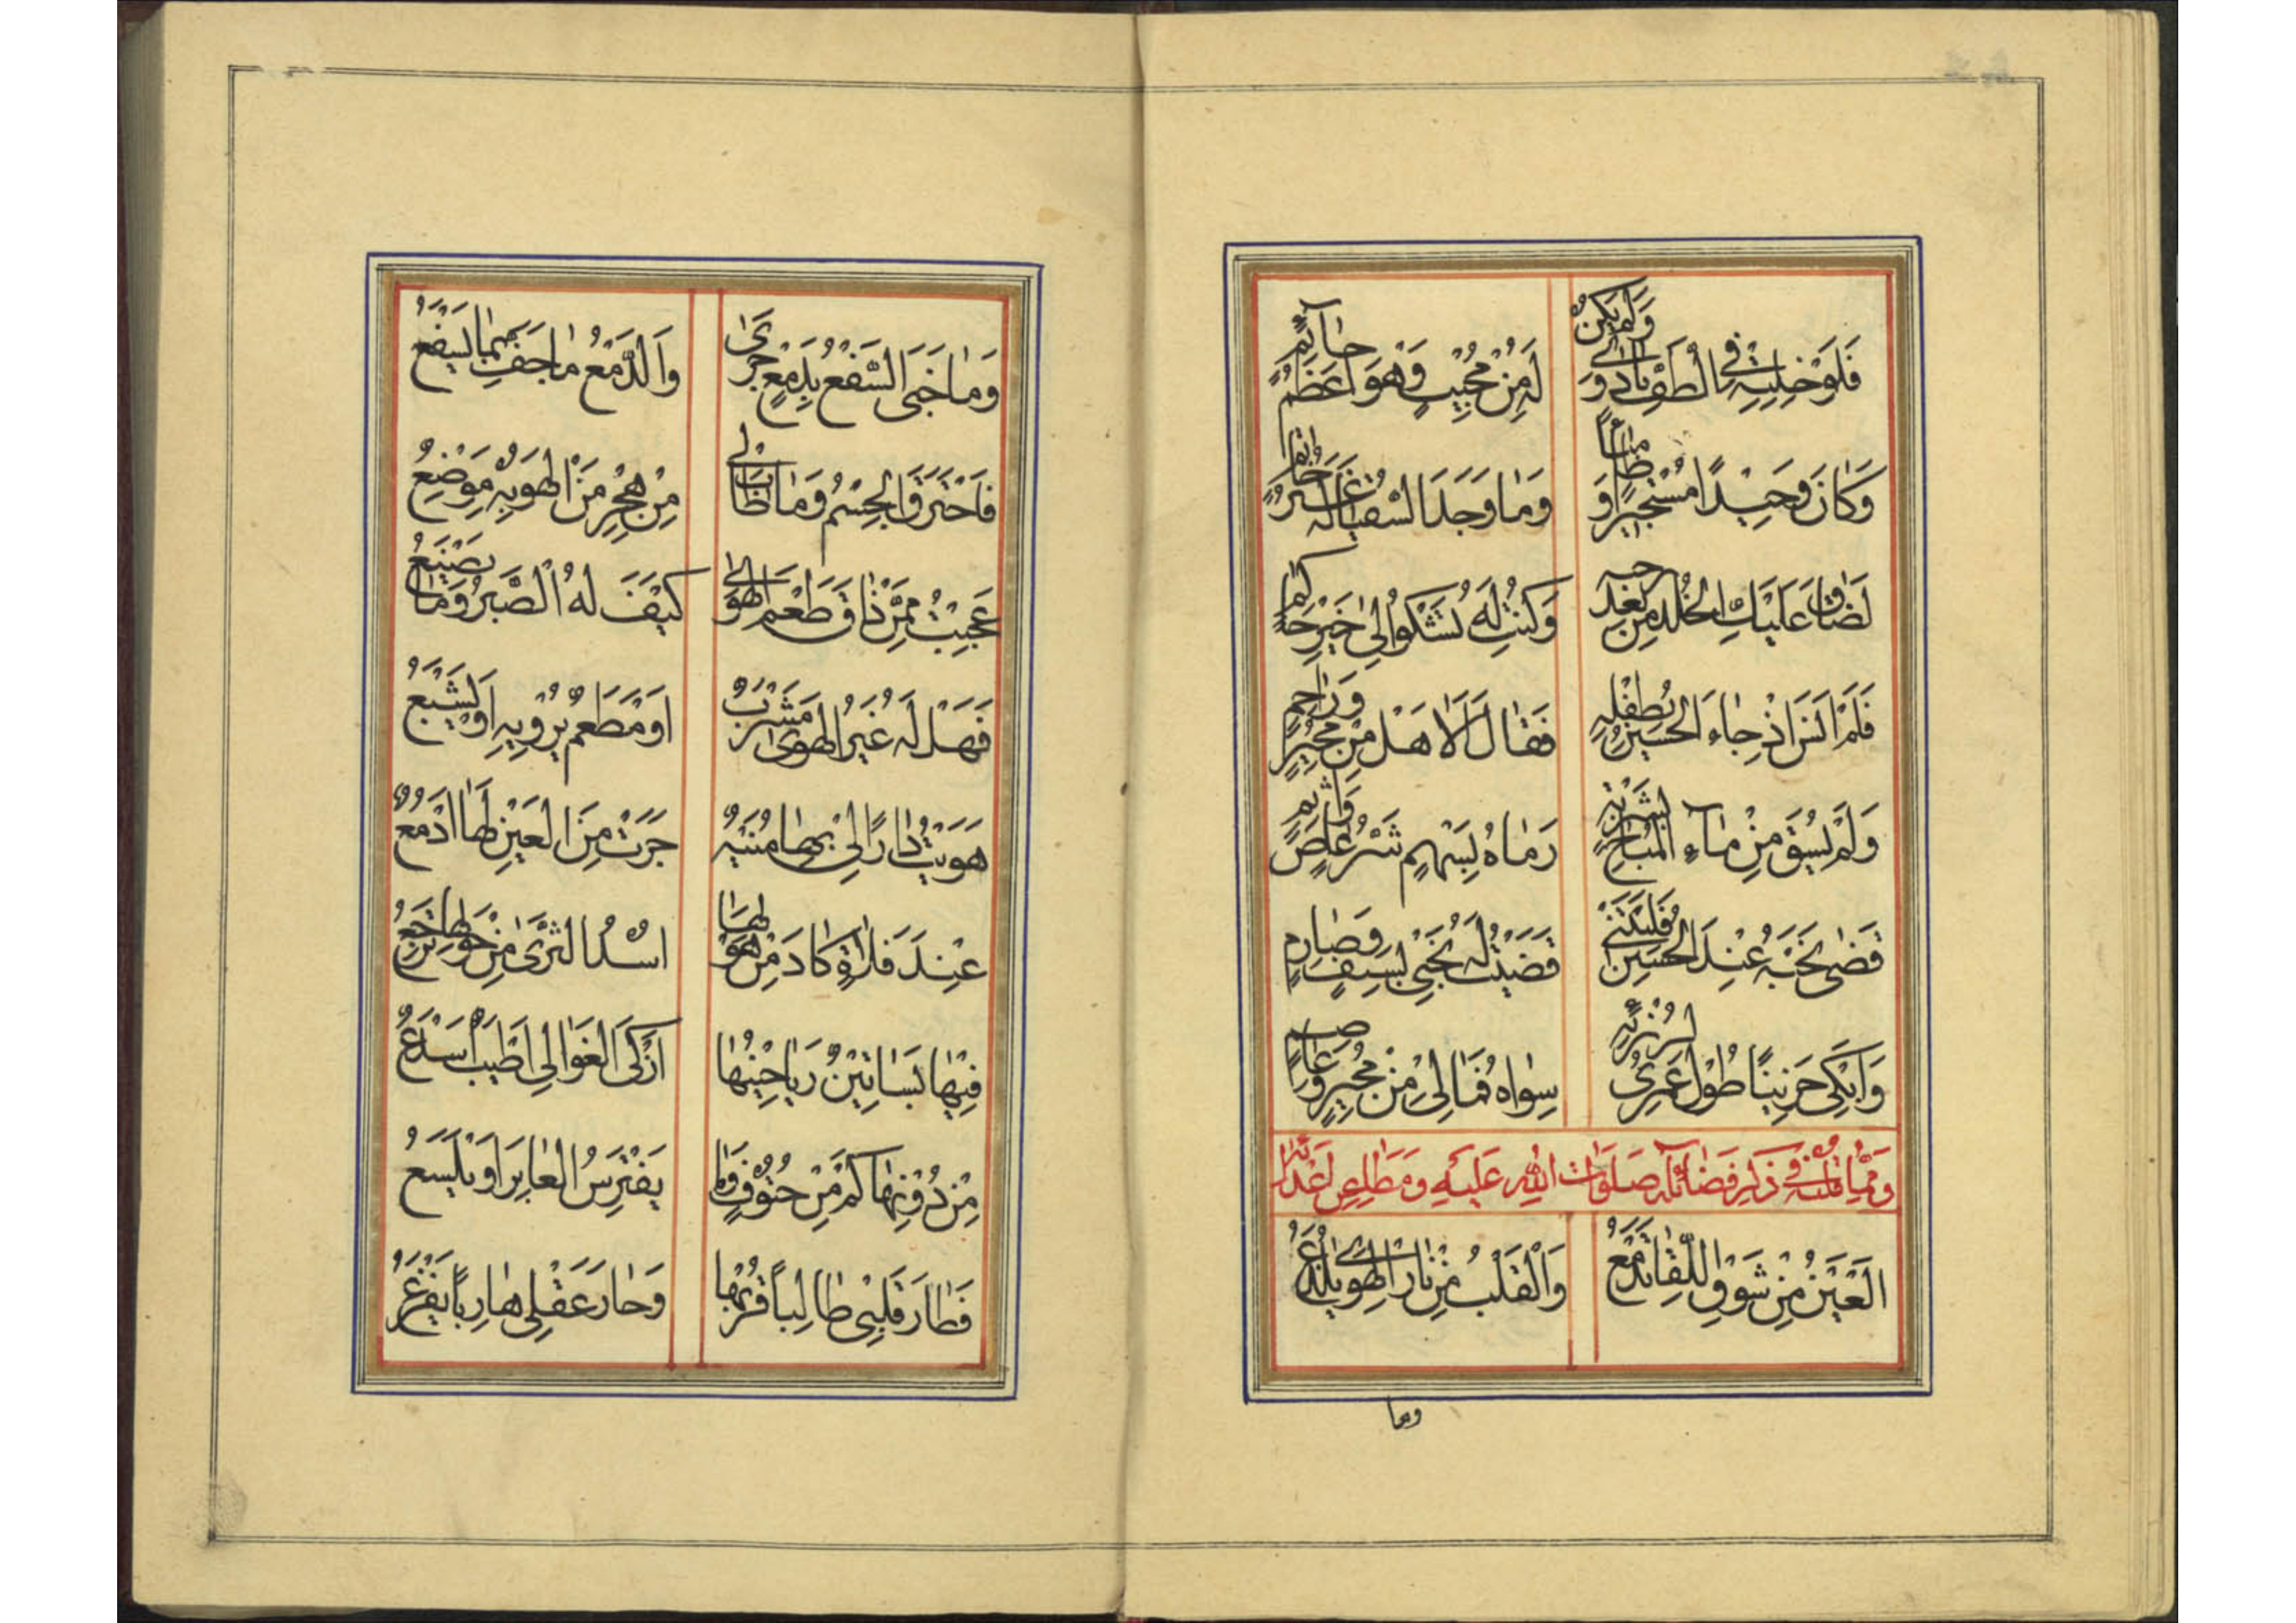 فَلَوْ خِلِيتِهِ فِي الطَّفِّ نَادَى وَلَمْ يَكُنْ
لَهُ مِنْ مُجِيبٍ وَهْوَ
وَكَانَ وَحِيدًا مُسْتَجِيرًا وَ
وَمَا وَجَدَ السُّقْيَا لَهُ
لَضَاقَ عَلَيْكِ الْخُلْدُ مِنْ بَعْدِ
وَكُنْتِ لَهُ تَشْكُو إِلَى خَيْرِ
فَلَمْ أَنْسَ إِذْ جَاءَ الْحُسَيْنُ بِطِفْلِهِ
فَقَالَ أَلَا هَلْ مِنْ مُجِيرٍ وَرَاحِمِ
وَلَمْ يُسْقَ مِنْ مَاءِ الْمُبَاحِ بِشَرْبَةٍ
رَمَاهُ بِسَهْمٍ شَرُّ عَاصٍ وَآثِمِ
قَضَى نَحْبَهُ عِنْدَ الْحُسَيْنِ فَلَيْتَنِي
قَضَيْتُ لَهُ نَحْبِي بِسَيْفٍ وَصَارِمِ
وَأَبْكِي حَزِينًا طُولَ عُمْرِي
سِوَاهُ فَمَا لِي مِنْ مُجِيرٍ وَعَاصِمِ
وَمِمَّا قُلْتُهُ فِي ذِكْرِ فَضَائِلِهِ صَلَوَاتُ اللهِ عَلَيْهِ وَمَطَاعِنِ أَعْدَائِهِ
الْعَيْنُ مِنْ شَوْقِ اللِّقَا تَدْمَعُ
وَالْقَلْبُ مِنْ نَارِ الْهَوَى يُلْذَعُ
وما
وَمَا خَبَى السَّفْعُ بِدَمْعٍ جَرَى
وَالدَّمْعُ مَا جَفَّ بِمَا يَسْفَعُ
فَاحْتَرَقَ الْجِسْمُ وَمَا طَابَ لِي
مِنْ هَجْرِ مَنْ أَهْوَى بِهِ مَوْضِعُ
عَجِبْتُ مِمَّنْ ذَاقَ طَعْمَ الْهَوَى
كَيْفَ لَهُ الصَّبْرُ وَمَا يَصْنَعُ
فَهَلْ لَهُ غَيْرُ الْهَوَى مَشْرَبٌ
أَوْ مَطْعَمٌ يُرْوِيهِ أَوْ يُشْبِعُ
هَوَيْتُ دَارًا لِي بِهَا مُنْيَةٌ
جَرَتْ مِنَ الْعَيْنِ لَهَا أَدْمُعٌ
عِنْدَ فَلَاةٍ كَادَ مِنْ هَوْلِهَا
أُسْدُ الثَّرَى مِنْ حَوْلِهَا تَرْجِعُ
فِيهَا بَسَاتِينُ رَيَاحِينُهَا
أَزْكَى الْغَوَالِي أَطْيَبٌ أَسْدَعُ
مِنْ دُونِهَا كَمْ مِنْ حُتُوفٍ
يَفْتَرِسُ الْعَابِرَ أَوْ يَلْسَعُ
فَطَارَ قَلْبِي طَالِبًا قُرْبَهَا
وَحَارَ عَقْلِي هَارِبًا يَفْزَعُ